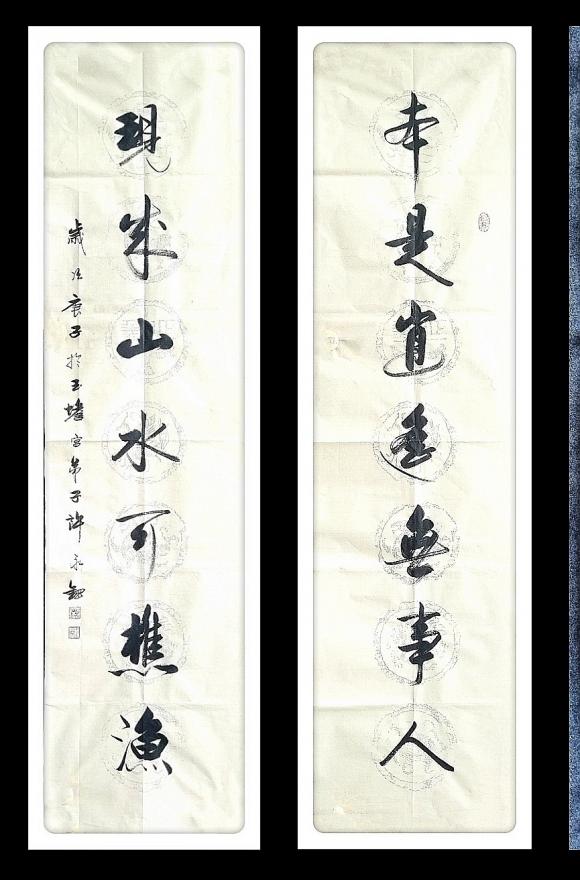 本是逍遥無事人
現成山水可樵漁
歲次庚子於玉墏宮弟子許永